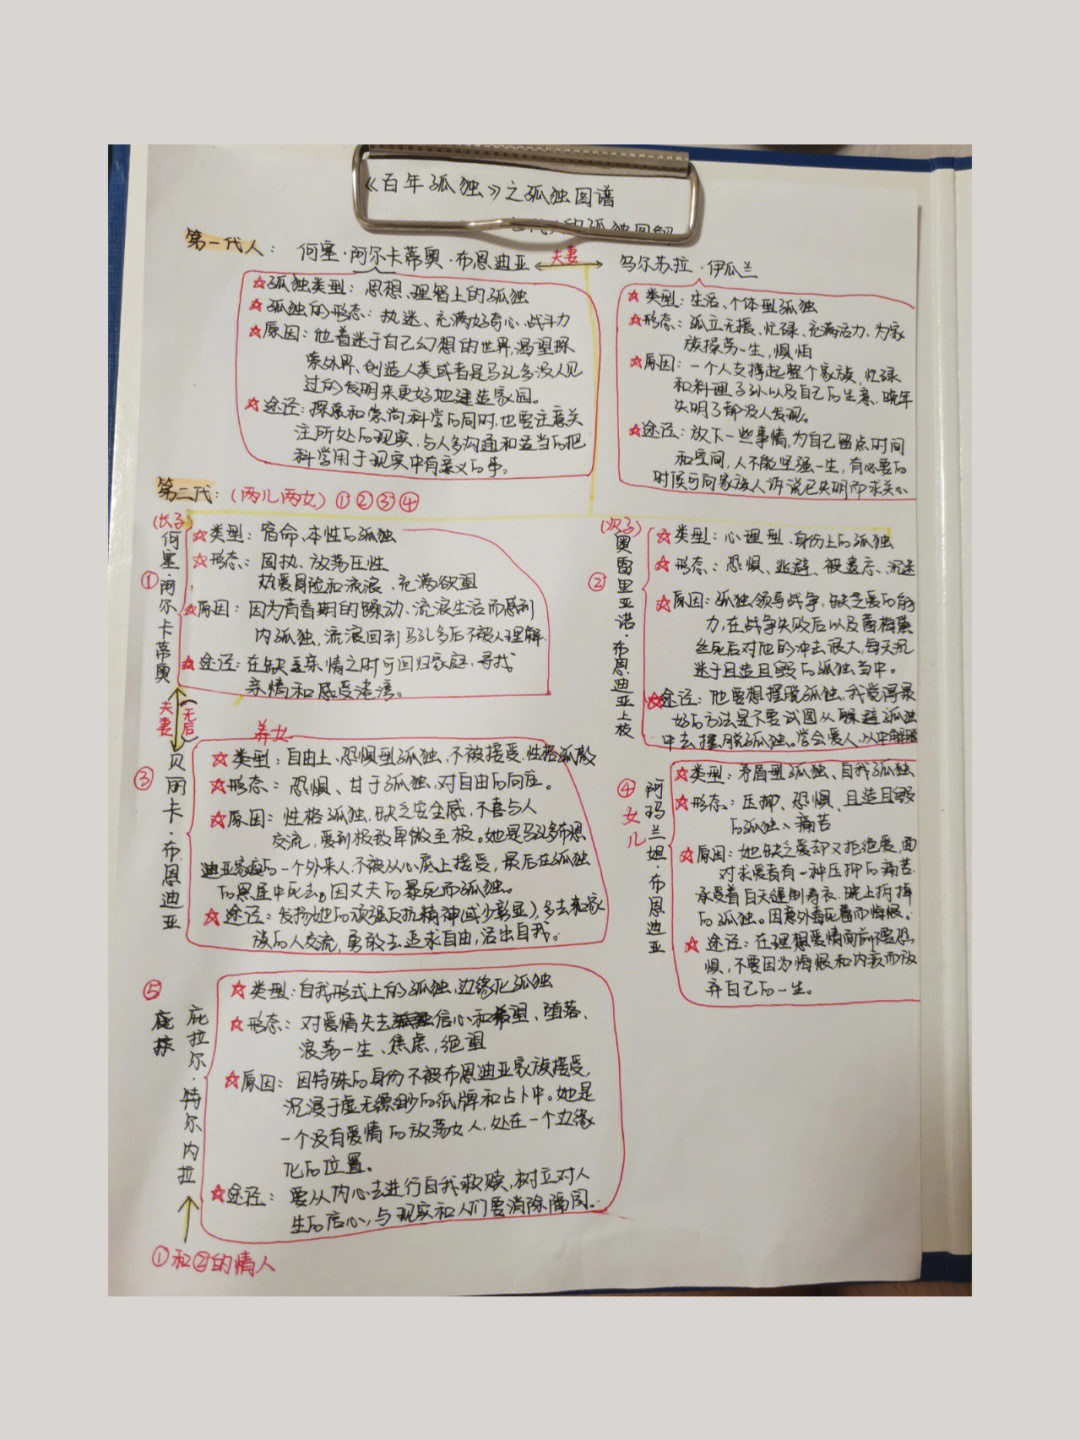 《百年孤独》之孤独图谱
人的孤独图解
第一代人：
何塞·阿尔卡蒂奥·布恩迪亚
夫妻
乌尔苏拉·伊瓜兰
☆孤独类型：思想、理智上的孤独
☆孤独的形态：执迷、充满好奇心、战斗力
☆原因：他着迷于自己幻想的世界,渴望探
索外界、创造人类或者是马孔多没人见
过的发明来更好地建造家园。
☆途径：探索和崇尚科学的同时,也要注意关
注所处的现实,与人多沟通和适当的把
科学用于现实中有意义的事。
☆类型：生活、个体型孤独
☆形态：孤立无援、忙碌、充满活力、为家
族操劳一生,惧怕
☆原因：一个人支撑起整个家族,忙碌
和料理子孙以及自己的生意,晚年
失明了都没人发现。
☆途径：放下一些事情,为自己留点时间
和空间,人不能坚强一生,有必要的
时候可向家族人诉说已失明而求关心
第二代：(两儿两女)①②③④
(长子)
①
何塞·阿尔卡蒂奥
☆类型：宿命、本性的孤独
☆形态：固执、放荡压性
热爱冒险和流浪、充满欲望
☆原因：因为青春期的躁动、流浪生活而感到
内孤独,流浪回到马孔多后不被人理解
☆途径：在缺乏亲情之时可回归家庭,寻找
亲情和感受港湾。
夫妻
(无后)
(次子)
②
奥雷里亚诺·布恩迪亚上校
☆类型：心理型、身份上的孤独
☆形态：恐惧、逃避、被遗忘、沉迷
☆原因：孤独领导战争,缺乏爱的能
力,在战争失败后以及蕾梅黛
丝死后对他的冲击很大,每天沉
迷于且造且毁的孤独当中。
☆途径：他要想摆脱孤独,我觉得最
好的方法是不要试图从躲避孤独
中去摆脱孤独。学会爱人,从中解脱
养女
③
贝丽卡·布恩迪亚
☆类型：自由上、恐惧型孤独,不被接受,性格孤傲
☆形态：恐惧、甘于孤独,对自由的向往。
☆原因：性格孤独,缺乏安全感,不喜与人
交流,爱到极致卑微至极。她是马孔多布恩
迪亚家庭的一个外来人,不被从心底上接受,最后在孤独
的恩连中死去,因丈夫的暴死而孤独。
☆途径：发扬她的顽强反抗精神(或少彰显),多去和家
族的人交流,勇敢去追求自由,活出自我。
④
女儿
阿玛兰妲·布恩迪亚
☆类型：矛盾型孤独、自我孤独
☆形态：压抑、恐惧、且造且毁
的孤独、痛苦
☆原因：她缺乏爱却又拒绝爱,面
对求爱者有一种压抑的痛苦.
承受着白天缝制寿衣、晚上拆掉
的孤独。因意外毒死蕾而悔恨。
☆途径：在理想爱情面前不要恐
惧,不要因为悔恨和内疚而放
弃自己的一生。
⑤
庇拉尔·特尔内拉
☆类型：自我形式上的孤独,边缘化孤独
☆形态：对爱情失去信心和希望、堕落、
浪荡一生、焦虑,绝望
☆原因：因特殊的身份不被布恩迪亚家族接受,
沉浸于虚无缥缈的纸牌和占卜中。她是
一个没有爱情的放荡女人,处在一个边缘
化的位置。
☆途径：要从内心去进行自我救赎,树立对人
生的信心,与现实和人们要消除隔阂。
①和②的情人